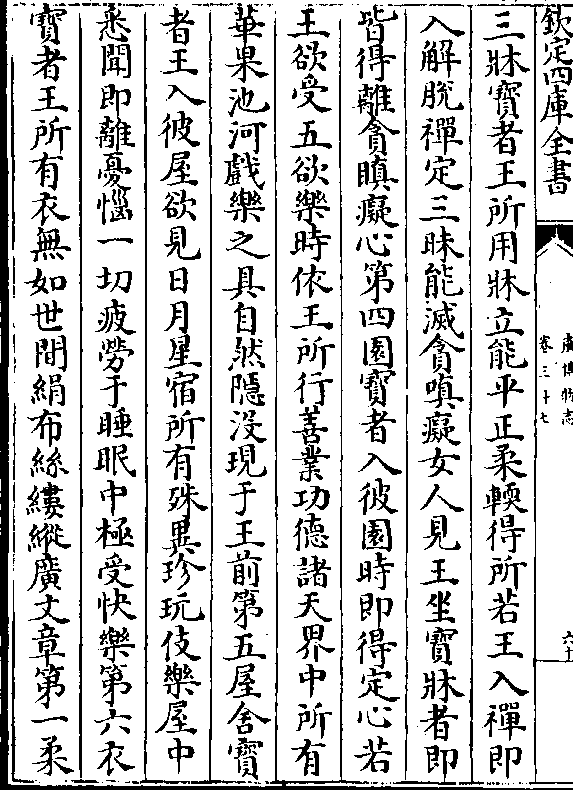 欽定四庫全書
廣博物志
卷三十七
三牀寳者王所用牀立能平正柔輭得所若王入禪即
入解脫禪定三昧能滅貪嗔癡女人見王坐寳牀者即
皆得離貪瞋癡心第四園寳者入彼園時即得定心若
王欲受五欲樂時依王所行善業功德諸天界中所有
華果池河戲樂之具自然隱没現于王前第五屋舍寳
者王入彼屋欲見日月星宿所有殊異珍玩伎樂屋中
悉聞即離憂惱一切疲勞于睡眠中極受快樂第六衣
寳者王所有衣無如世間絹布絲縷縱廣文章第一柔